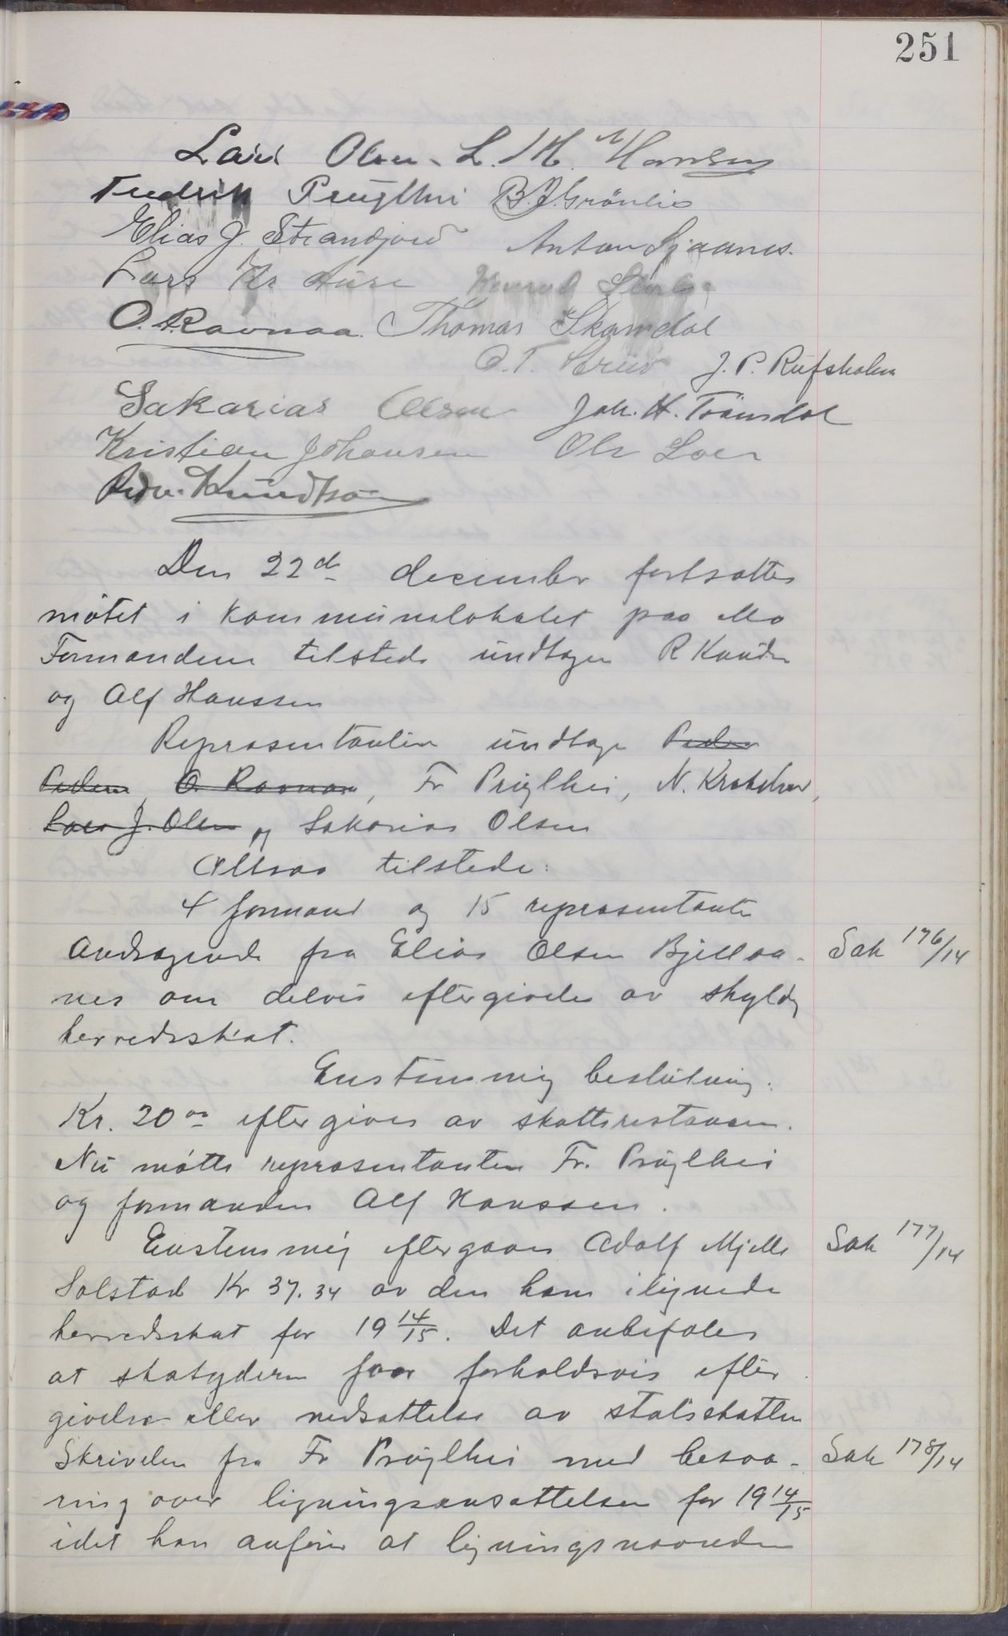 251
Lars Olsen. L. M. Hansen
Fredrik Prøylhei B. J. Grönlie
Elias J. Strandjord Anton Sjaanes.
Lars Kr Aure
O. Ravnaa. Thomas Skamdal
O. T. J. P. Rufsholm
Sakarias Olsen Joh. H. Tramsdal
Kristian Johansen Ole Loer
Knudtson
Den 22de december fortsattes
møtet i kommunelokalet paa Mo
Formændene tilstede undtagen R Kunds
og Alf Hanssen
Repræsentanter undtagen Peder
Pedersen, O. Ravnaa, Fr Prøylhei, N. Krokstrand,
Lars J. Olsen og Sakarias Olsen
Altsaa tilstede:
4 formænd og 15 repræsentanter
Andragende fra Elias Olsen Bjellaa- Sak 176/14
nes om delvis eftergivelse av skyldig
herredsskat.
Enstemmig beslutning:
Kr. 20oo eftergives av skatterestancen.
Nu møtte repræsentanten Fr. Prøylhei
og formanden Alf Hanssen.
Enstemmig eftergaaes Adolf Mjelle Sak 177/14
Solstad Kr 37.34 av den ham ilignede
herredsskat for 19 14/15. Det anbefales
at skatyderen faar forholdsvis efter
givelse eller nedsættelse av statsskatten
Skrivelse fra Fr Prøylhei med besvæ- Sak 178/14
ring over ligningsansættelsen for 19 14/15
idet han anfører at ligningsnævnden